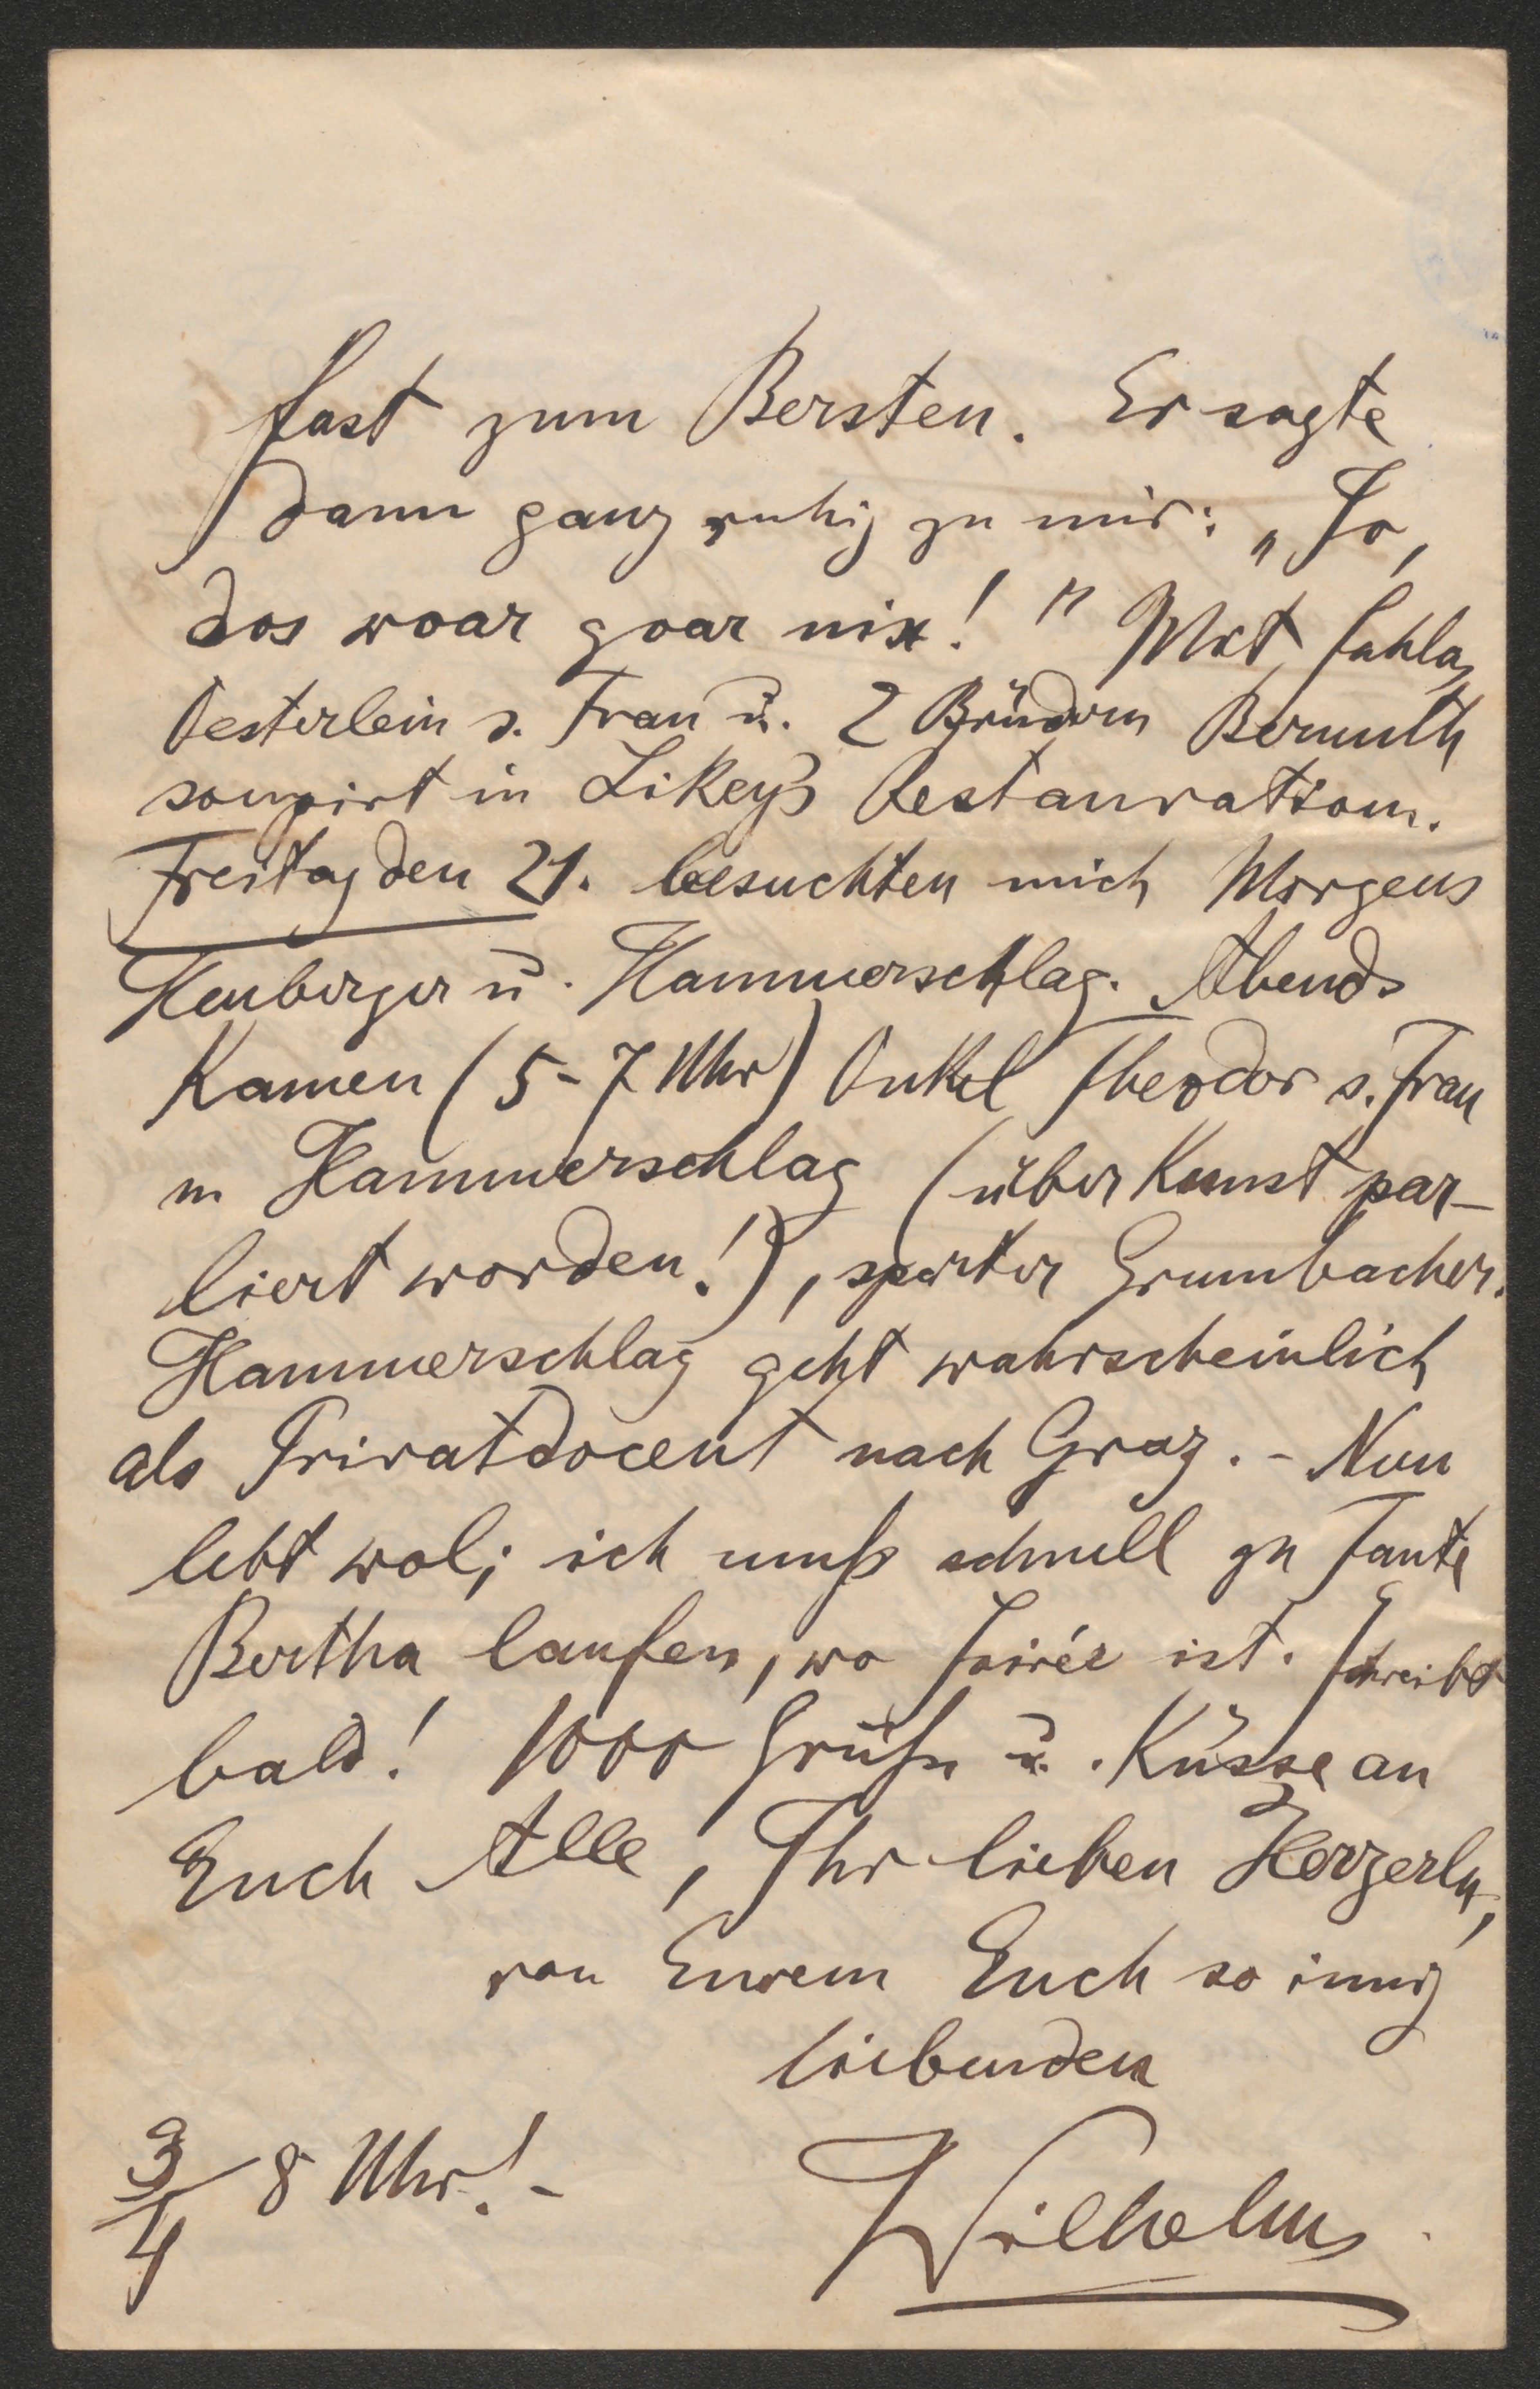 fast zum Bersten. Er sagte
dann ganz ruhig zu mir: „Jo,
dos woar goar nix!" Mit Fahla,
Oesterlein s. Frau u. 2 Brüdern Bermuth
soupirt in Likey's Restauration.
Freitag den 21. besuchten mich Morgens
Heuberger u. Hammerschlag. Abends
Kamen (5-7 Uhr) Onkel Theodor s. Frau
u. Hammerschlag (über Kunst par-
liert worden!), später Grumbacher.
Hammerschlag geht wahrscheinlich
als Privatdocent nach Graz. - Nun
lebt wol; ich muß schnell zu Tante
Bertha laufen, wo Soirée ist. Schreibt
bald! 1000 Grüße u. Küsse an
Euch Alle, Ihr lieben Herzerln,
von Eurem Euch so innig
liebenden
3/4 8 Uhr! - Wilhelm